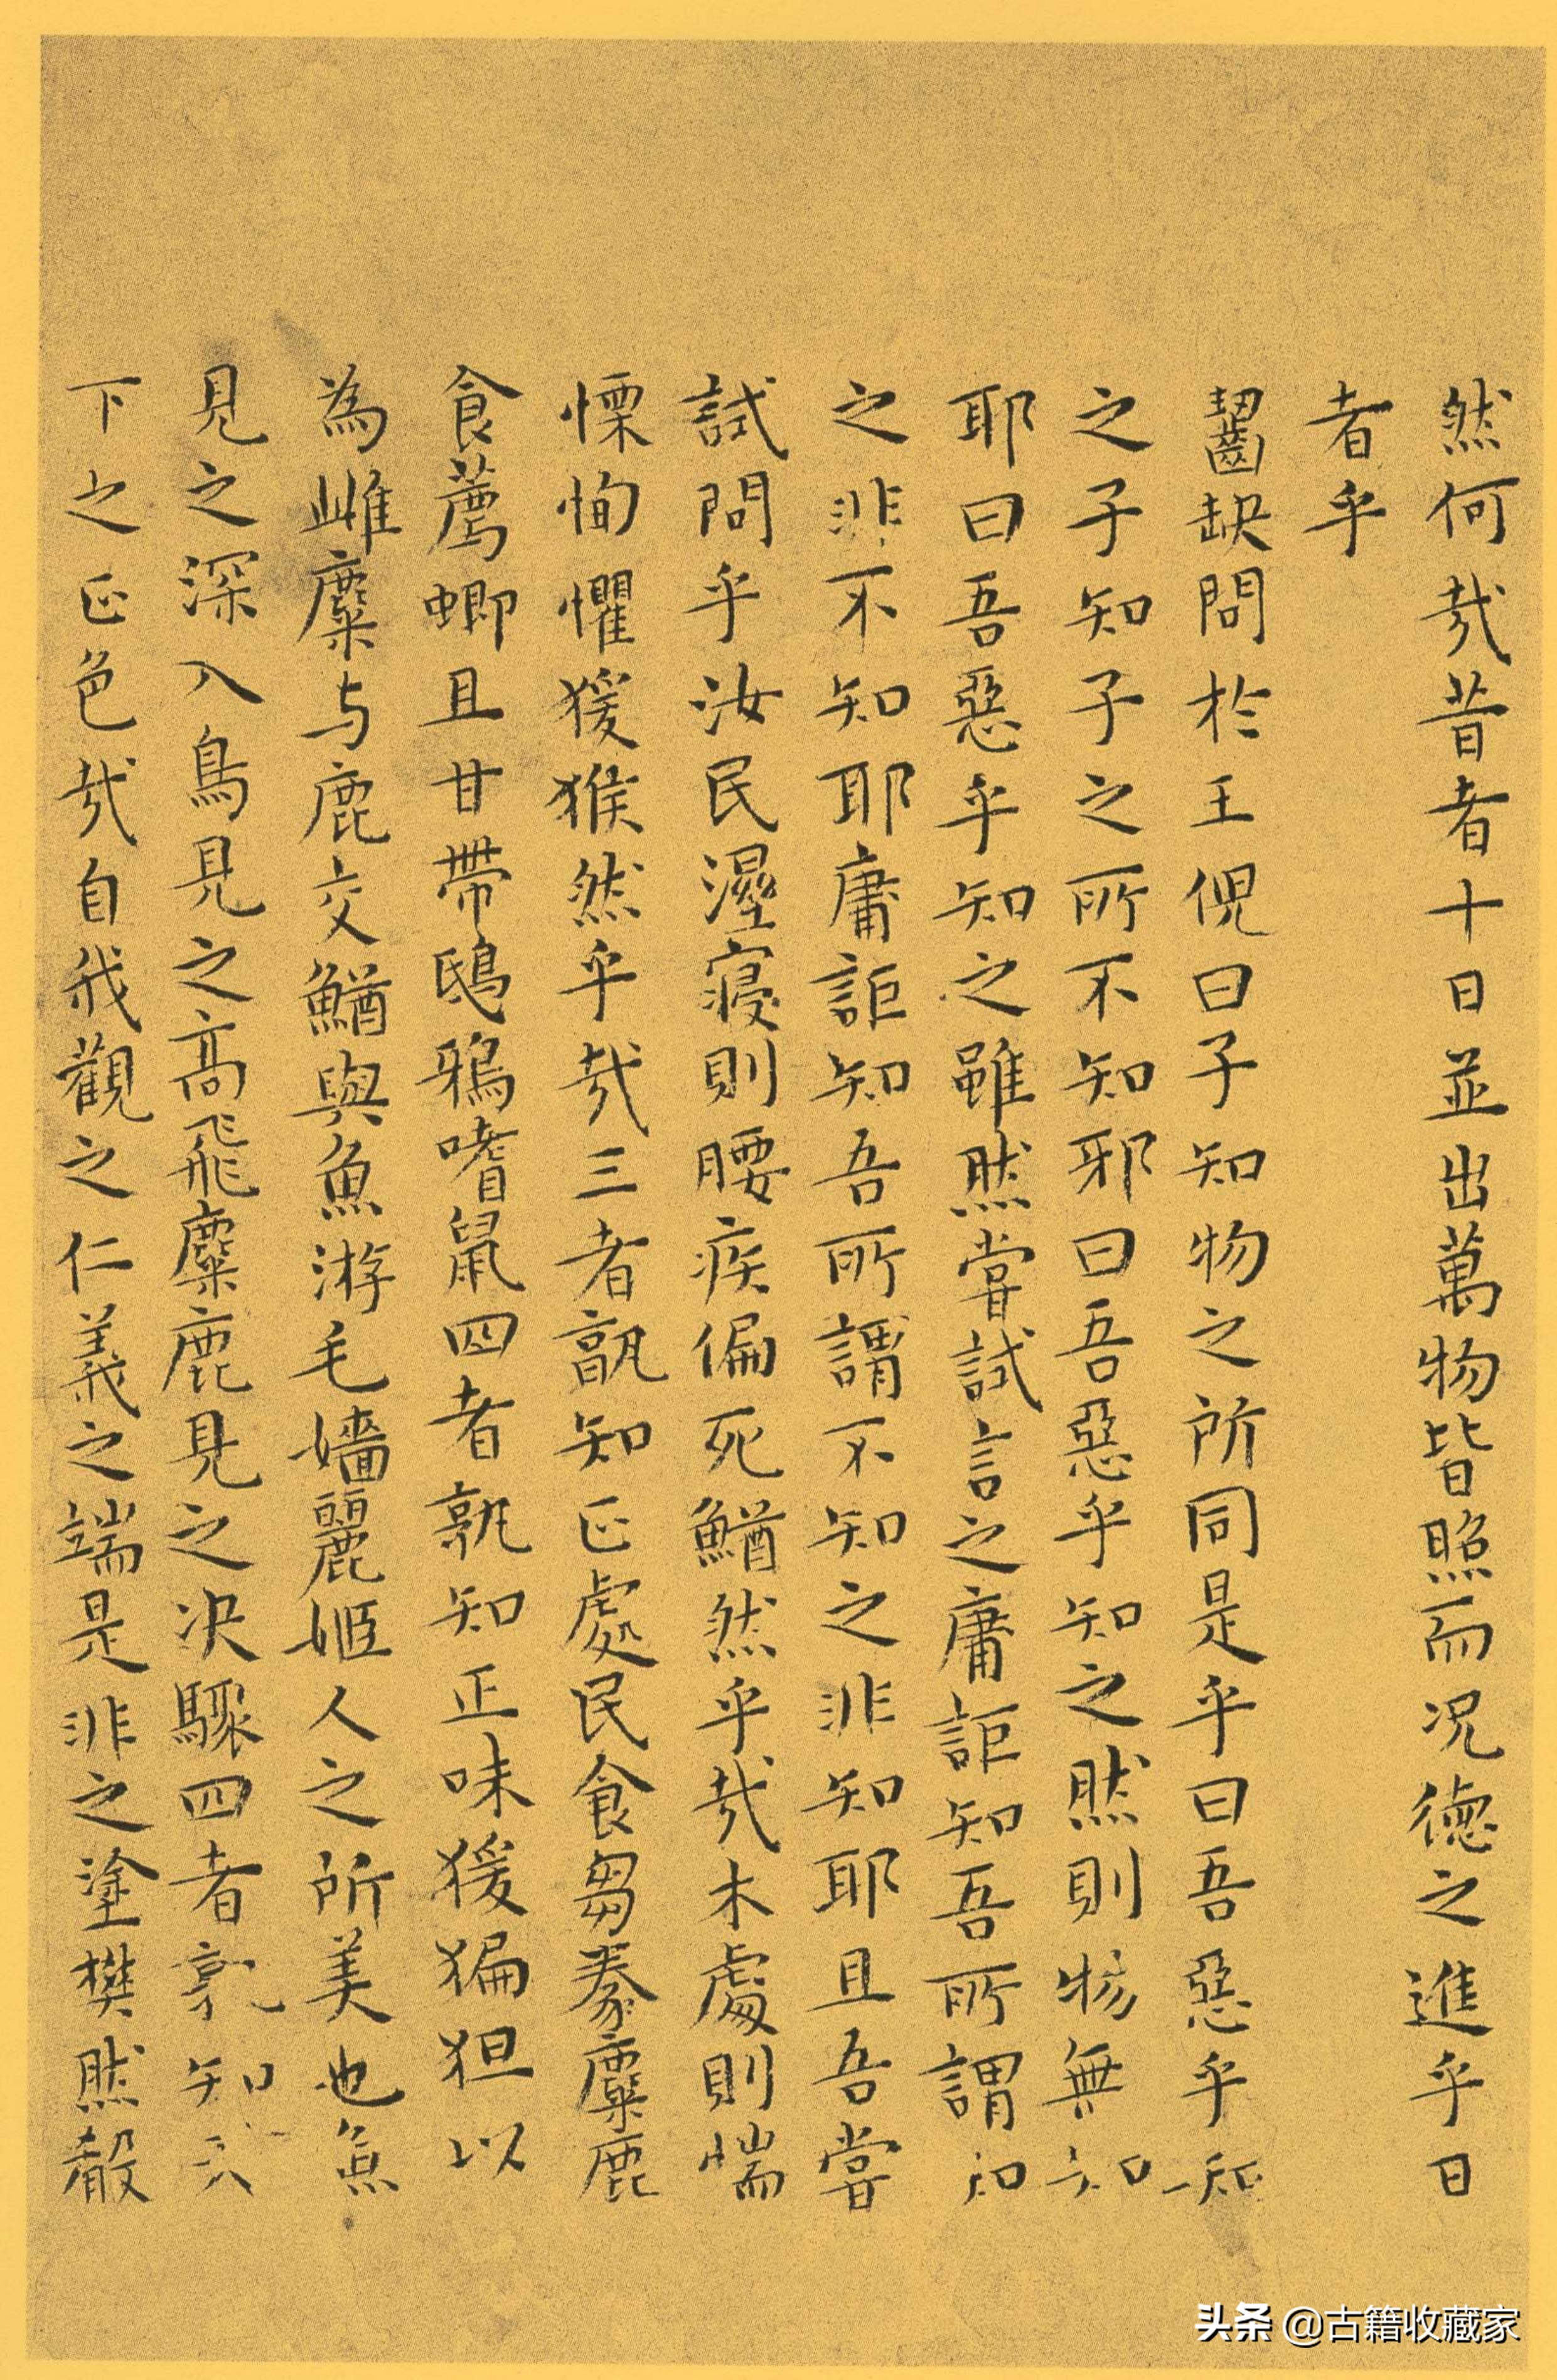 然何哉昔者十日並出萬物皆照而况德之進乎日
者乎
齧缺問於王倪曰子知物之所同是乎曰吾惡乎知
之子知子之所不知邪曰吾惡乎知之然則物無知
耶曰吾惡乎知之雖然嘗試言之庸詎知吾所謂知
之非不知耶庸詎知吾所謂不知之非知耶且吾嘗
試問乎汝民溼寢則腰疾偏死鰌然乎哉木處則惴
慄恂懼猨猴然乎哉三者孰知正處民食芻豢麋鹿
食薦蝍且甘帶鴟鴉嗜鼠四者孰知正味猨猵狚以
為雌麋与鹿交鰌與魚游毛嬙麗姬人之所美也魚
見之深入鳥見之高飛麋鹿見之决驟四者孰知天
下之正色哉自我觀之仁義之端是非之塗樊然殽
头条 @古籍收藏家